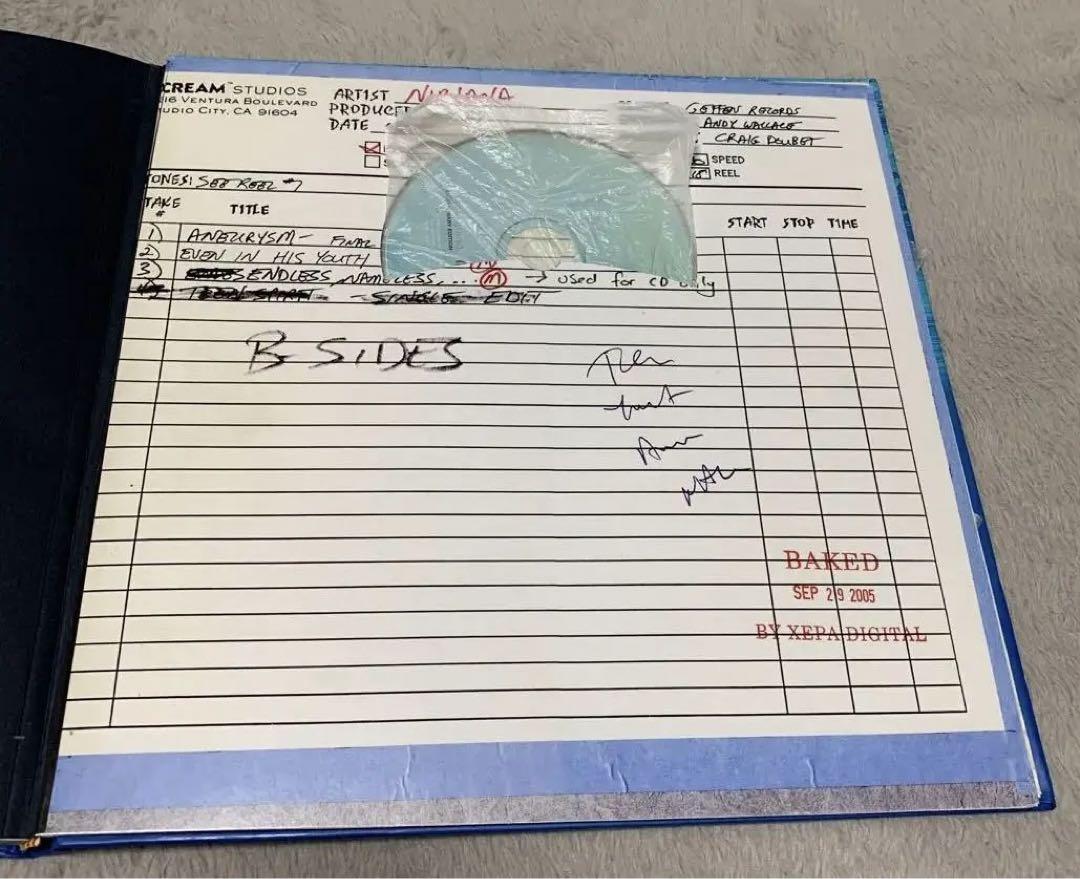 CREAM™ STUDIOS
VENTURA BOULEVARD
UDIO CITY, CA 91604
ARTIST NIRVANA
PRODUCE
DATE
GEFFEN RECORDS
ANDY WALLACE
CRAIG DOUBET
SPEED
15 REEL
TONES: SEE REEL #7
TAKE # TITLE START STOP TIME
1) ANEURYSM - FINAL
2) EVEN IN HIS YOUTH
3) ENDLESS, NAMELESS.... M → used for CD only
TEEN SPIRIT - SINGLE EDIT
B SIDES
BAKED
SEP 29 2005
BY XEPA DIGITAL